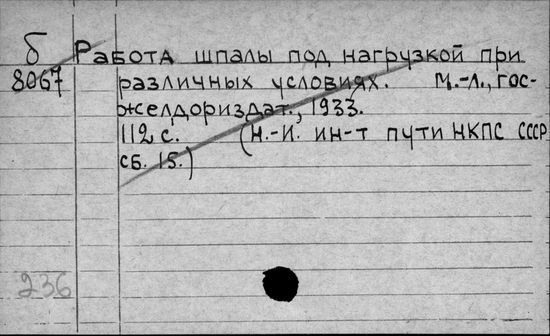 б Работа шпалы под нагрузкой при
8067 различных условиях. М.-Л., Гос-
желдориздат., 1933.
112 с. (Н.-И. ин-т пути НКПС СССР
сб. 15.)
236